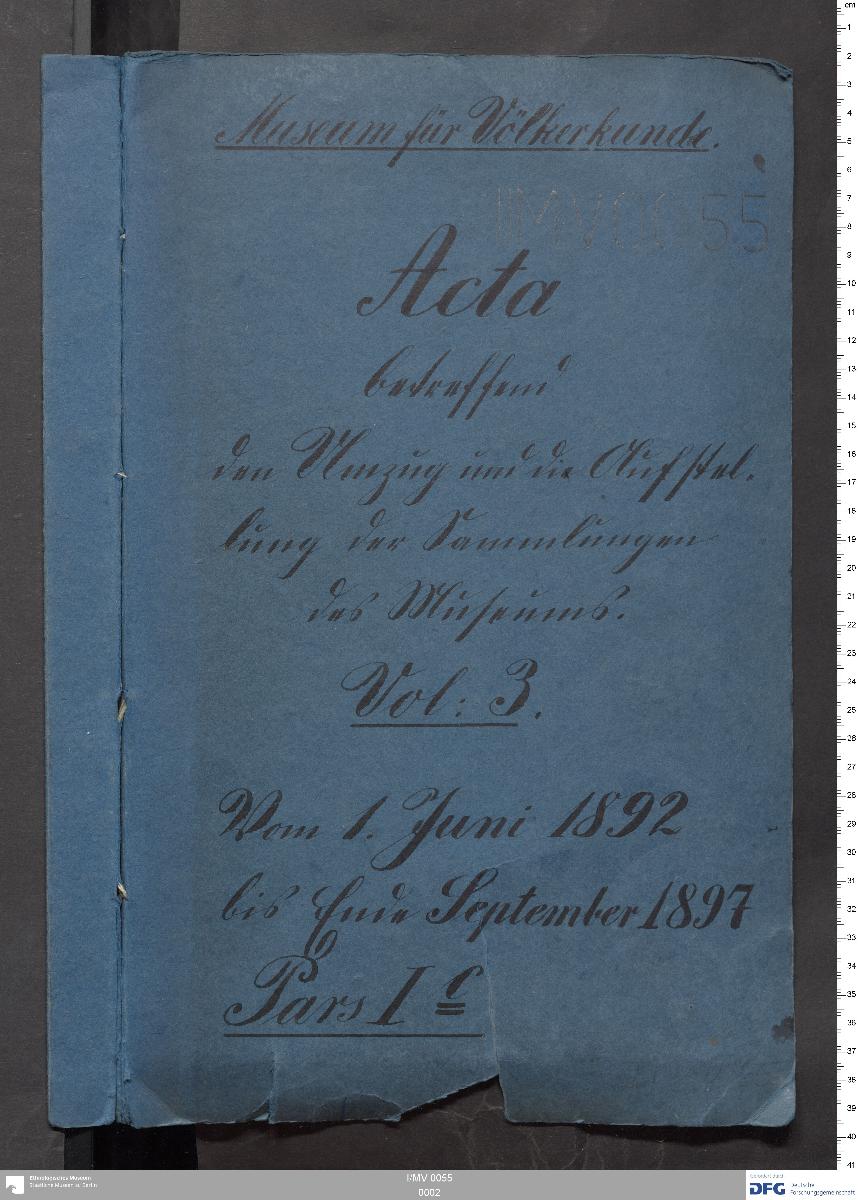 Museum für Völkerkunde.
I/MV 0055
Acta
betreffend
den Umzug und die Aufstel-
lung der Sammlungen
des Museums.
Vol: 3.
Vom 1. Juni 1892
bis Ende September 1897
Pars I c
cm
1
2
3
4
5
6
7
8
9
10
11
12
13
14
15
16
17
18
19
20
21
22
23
24
25
26
27
28
29
30
31
32
33
34
35
36
37
38
39
40
41
Ethnologisches Museum
Staatliche Museen zu Berlin
I/MV 0055
0002
Gefördert durch
DFG Deutsche
Forschungsgemeinschaft